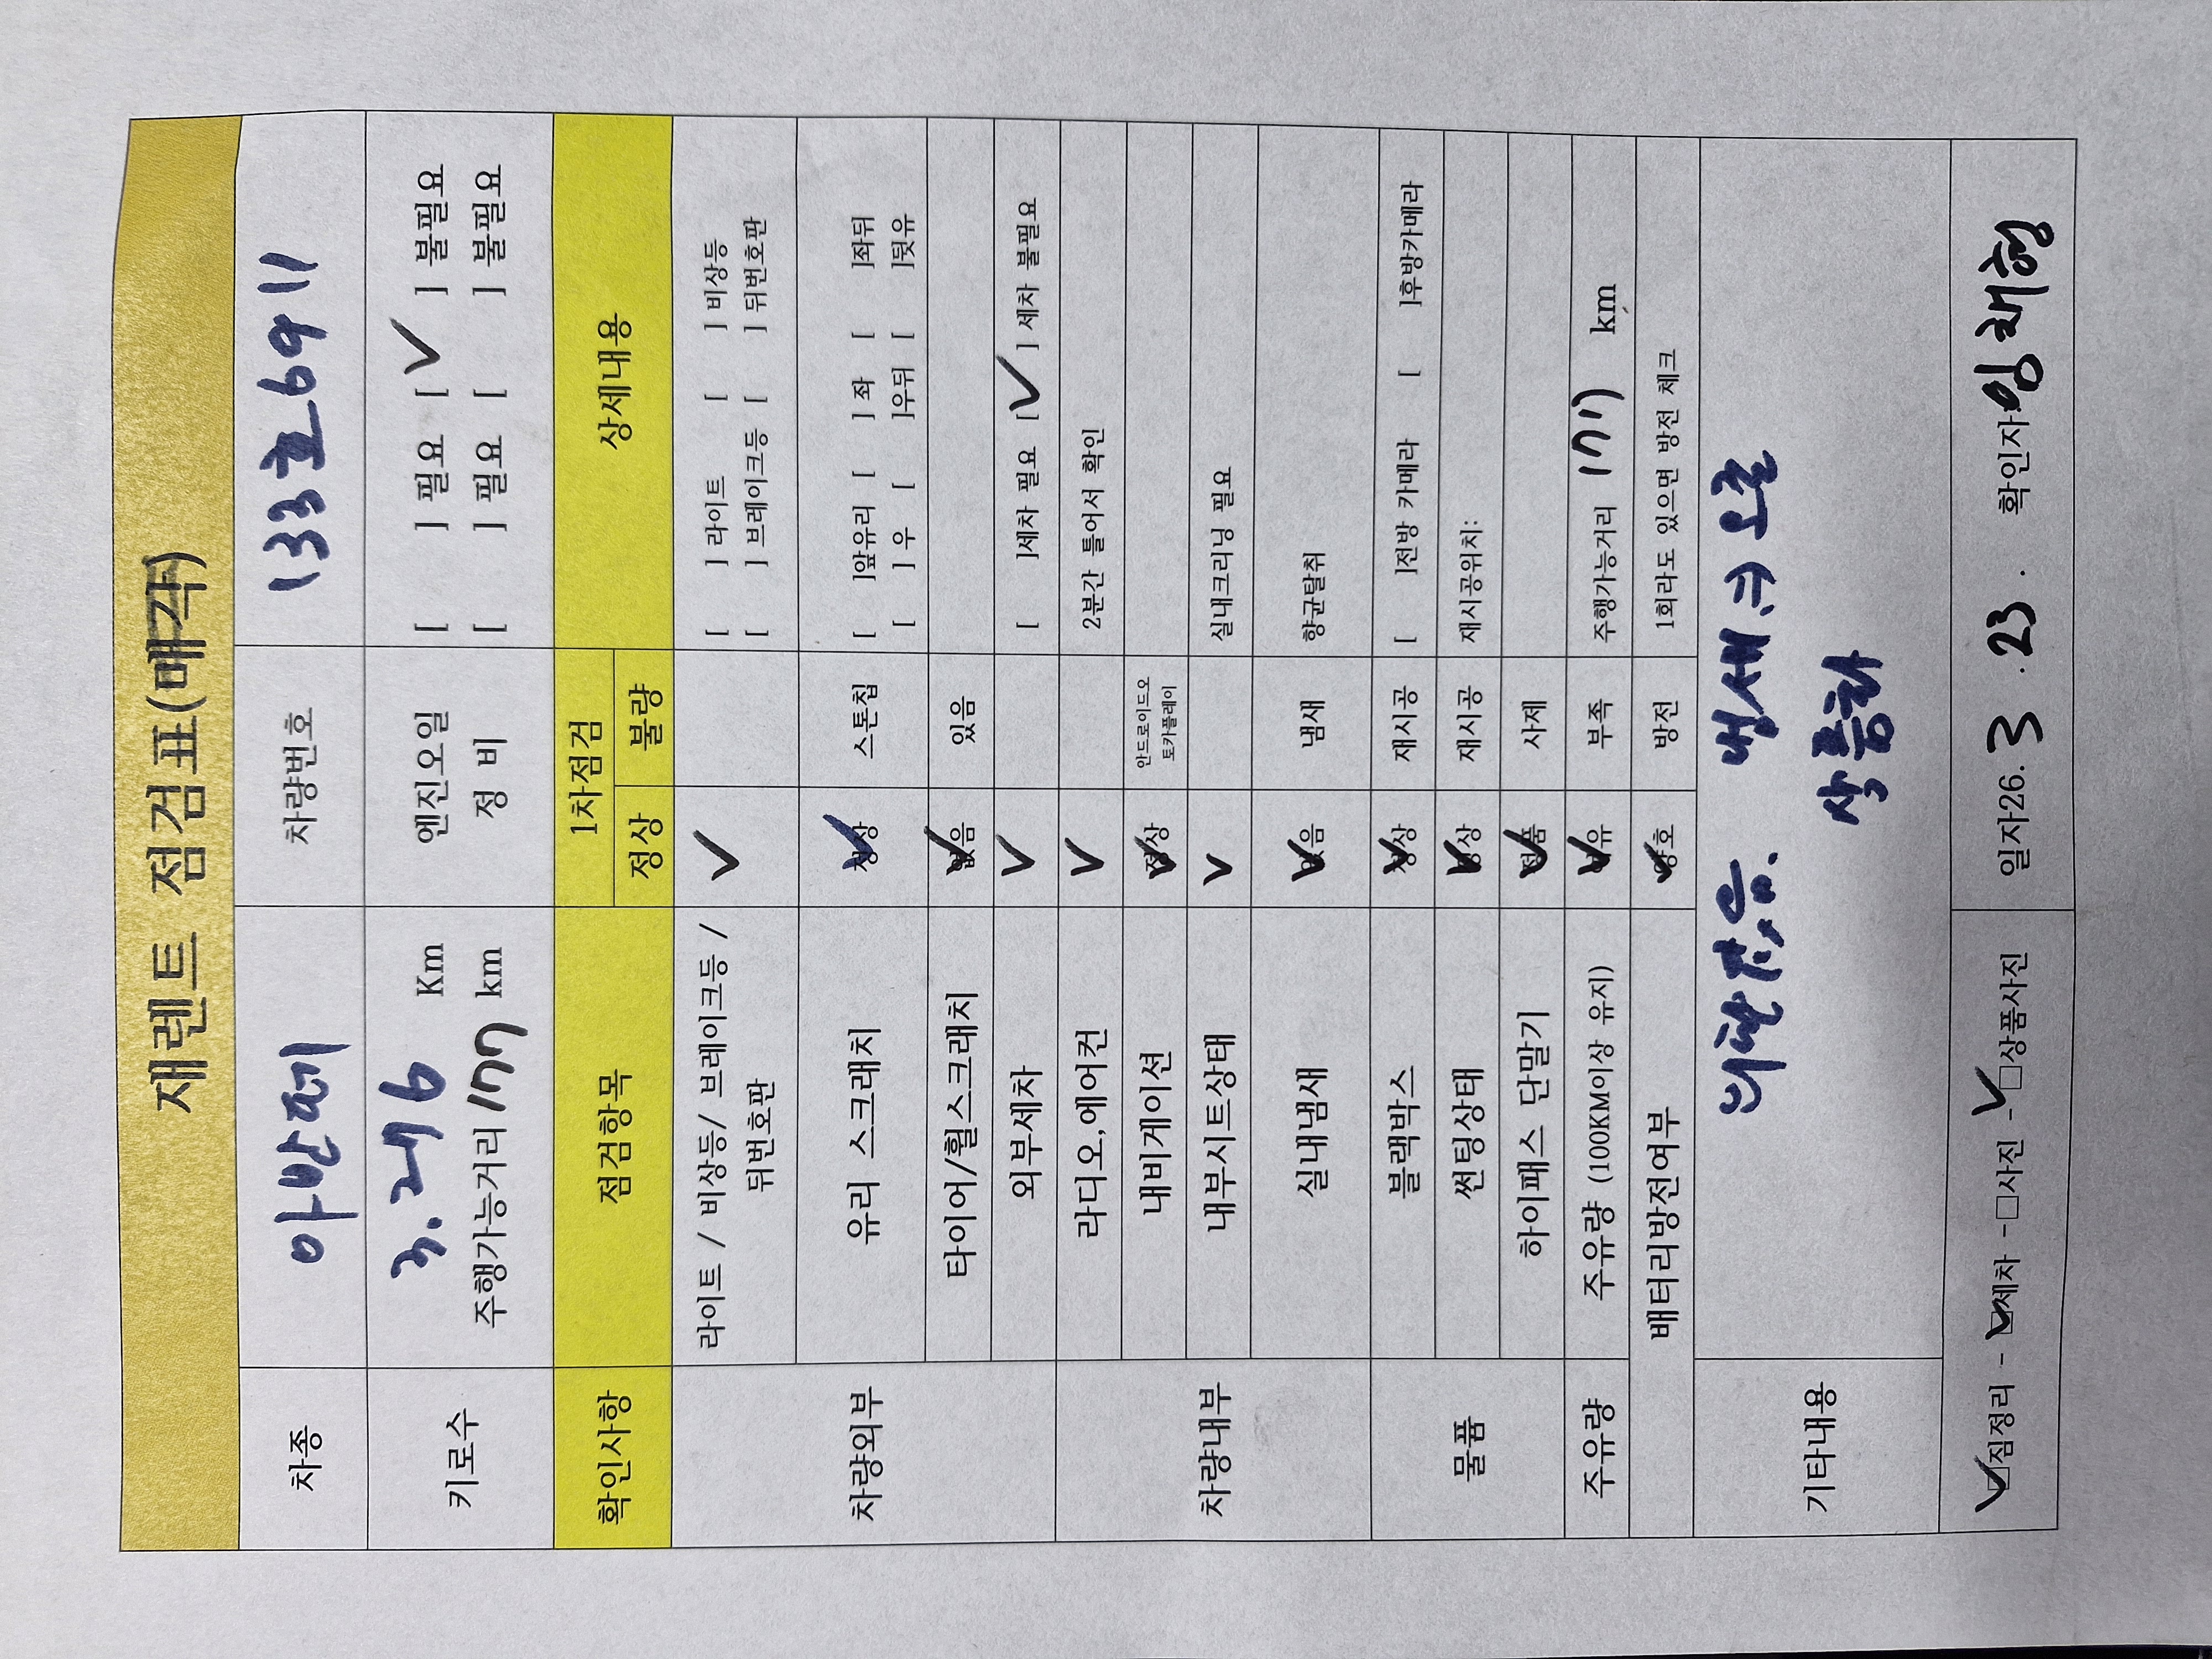 재렌트 점검표(매각)
차종 아반떼 차량번호 133호6911
키로수 Km 엔진오일 [ ] 필요 [✓] 불필요
주행가능거리 177 km 정 비 [ ] 필요 [ ] 불필요
확인사항 점검항목 1차점검 상세내용
정상 불량
차량외부 라이트 / 비상등/ 브레이크등 / ✓ [ ] 라이트 [ ] 비상등
뒤번호판 [ ] 브레이크등 [ ] 뒤번호판
유리 스크래치 정상 ✓ 스톤칩 [ ]앞유리 [ ] 좌 [ ]좌뒤
[ ] 우 [ ]우뒤 [ ]뒷유
타이어/휠스크래치 없음 ✓ 있음
외부세차 ✓ [ ]세차 필요 [✓] 세차 불필요
차량내부 라디오,에어컨 ✓ 2분간 틀어서 확인
내비게이션 정상 ✓ 안드로이드오
토카플레이
내부시트상태 ✓ 실내크리닝 필요
실내냄새 없음 ✓ 냄새 향균탈취
물품 블랙박스 정상 ✓ 재시공 [ ]전방 카메라 [ ]후방카메라
썬팅상태 정상 ✓ 재시공 재시공위치:
하이패스 단말기 정품 ✓ 사제
주유량 주유량 (100KM이상 유지) ✓ 부족 주행가능거리 177 km
배터리방전여부 양호 ✓ 방전 1회라도 있으면 방전 체크
기타내용
상품화
✓짐정리 - ✓세차 -□사진 -✓□상품사진 일자26. 3 . 23 . 확인자: 임채형